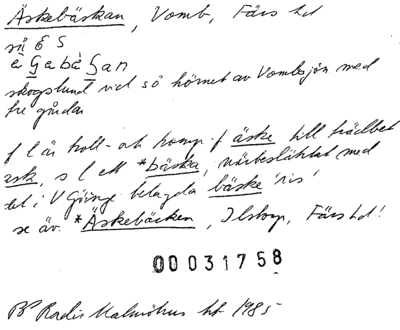 Äskebäskan, Vomb, Färs hd
skogslund vid sö hörnet av Vombsjön med
tre gårdar
f l är koll- och komp.-f äske till trädbet
ask, s l ett *bäska, närbesläktat med
det i V Göinge belagda bäske 'ris'
se äv. *Äskebäcken, Ilstorp, Färs hd!
00031758
Radio Malmöhus 1985